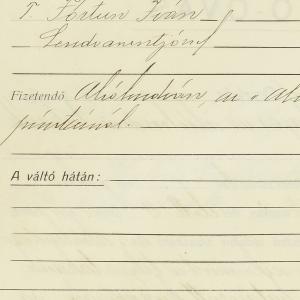 T. Fortun Iván
Lendvaszentjózsef
Fizetendő Alsólendván, az "Alsó
pénztáránál.
A váltó hátán: